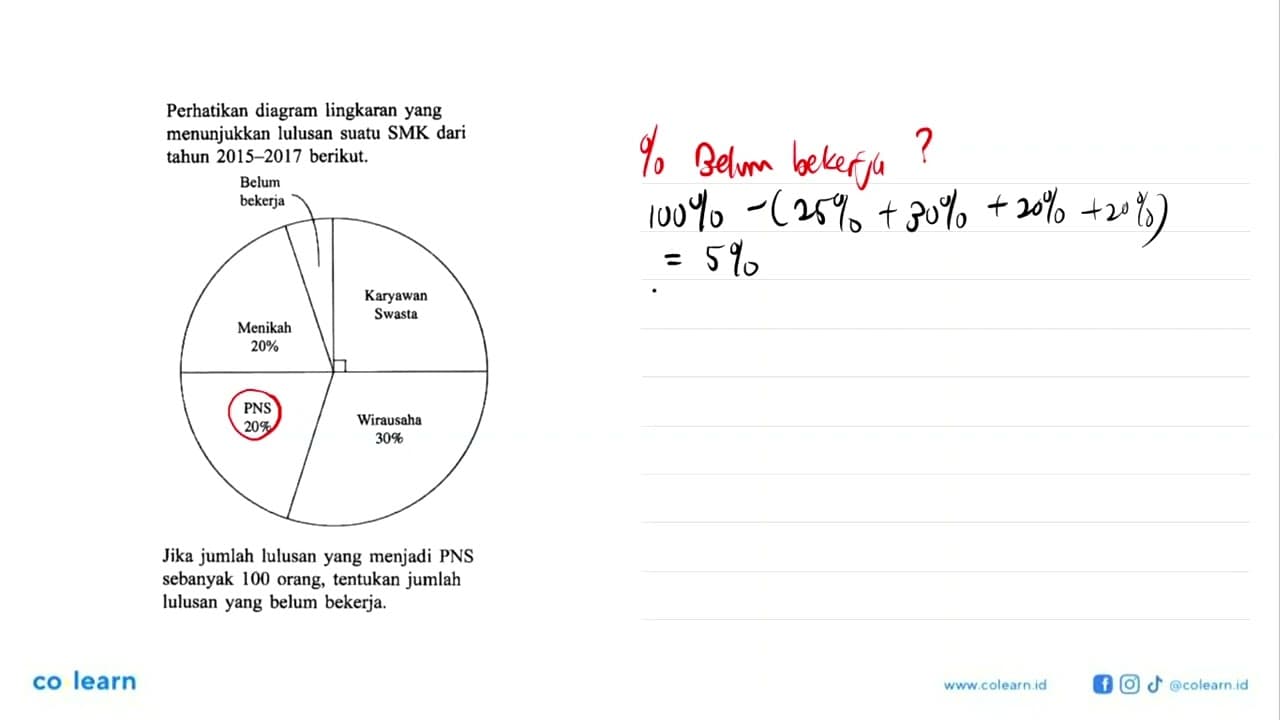 Perhatikan diagram lingkaran yang
menunjukkan lulusan suatu SMK dari
tahun 2015–2017 berikut.
Belum
bekerja
Karyawan
Swasta
Menikah
20%
PNS
20%
Wirausaha
30%
Jika jumlah lulusan yang menjadi PNS
sebanyak 100 orang, tentukan jumlah
lulusan yang belum bekerja.
% Belum bekerja ?
100% - (25% + 30% + 20% + 20%)
= 5%
co learn
www.colearn.id
@colearn.id